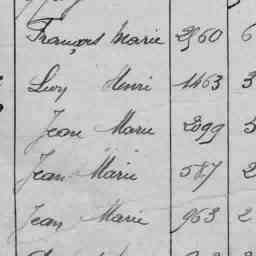 François Marie 2560 6
Henri 1463 3
Jean Marie 2099 5
Jean Marie 587 2
Jean Marie 963 2